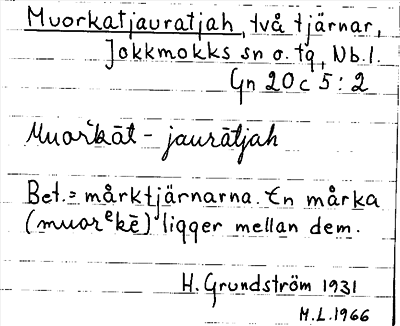 Muorkatjauratjah, två tjärnar,
Jokkmokks sn o. tg, Nb. l.
Gn 20 c 5 : 2
Muorkāt - jaurātjah
Bet. = mårktjärnarna. En mårka
(muorᵉkē) ligger mellan dem.
H. Grundström 1931
H.L. 1966